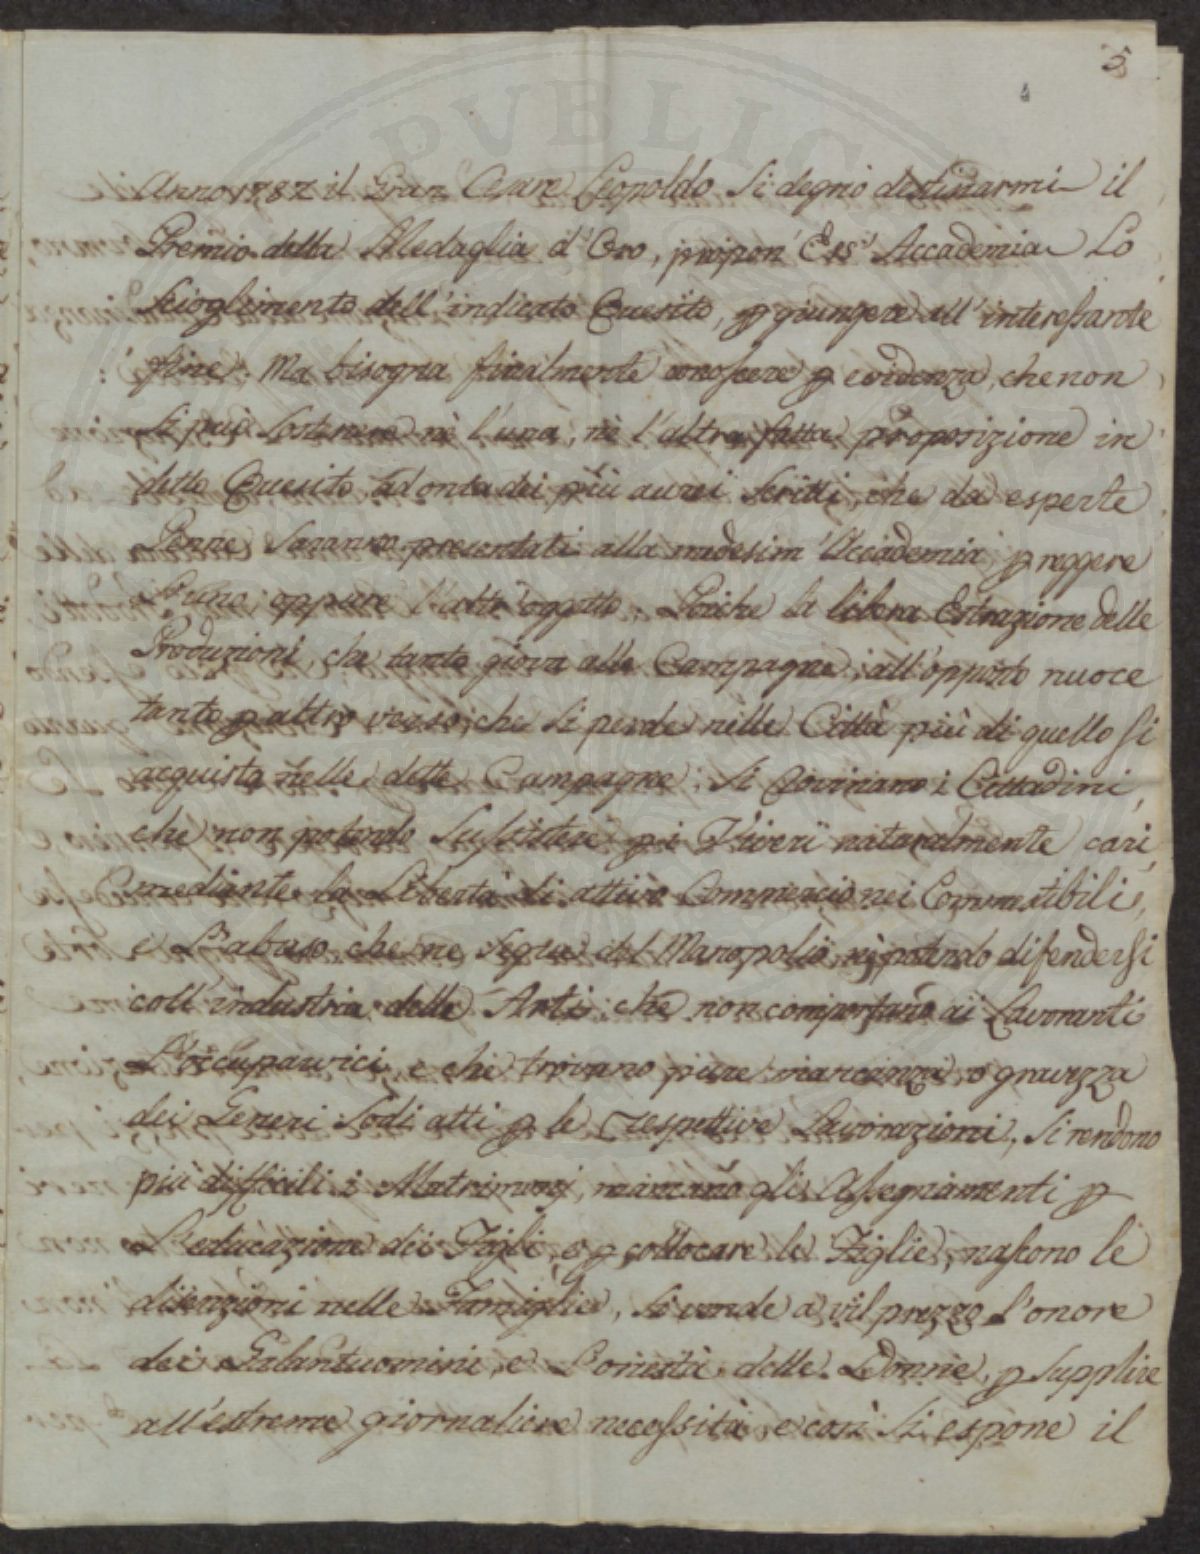 5
Anno 1787 il Gran Cesare Leopoldo si degnò destinarmi il
Premio della Medaglia d'Oro, propon' Ess' Accademia Lo
Scioglimento dell'indicato Quesito, p giungere all'interessante
fine: Ma bisogna finalmente conoscere p evidenza, che non
si può sostenere nè l'una, nè l'altra fatta proposizione in
detto Quesito ad onta dei più aurei scritti, che da esperte
Penne saranno presentati alla medesim' Accademia p reggere
l'uno, oppure l'altr'oggetto. Poiche la libera Estrazione delle
Produzioni, che tanto giova alle Campagne, all'opposto nuoce
tanto p altro verso, che si perde nelle Città più di quello si
acquista nelle dette Campagne: si rovinano i Cittadini,
che non potendo sussistere p i Viveri naturalmente cari,
mediante la Libertà di attivo Commercio nei Comestibili,
e l'abuso che ne segue del Monopolio, nè potendo difendersi
coll'industria delle Arti, che non comportano ai Lavoranti
l'occuparvici, e che trovano pure mancanza, o gravezza
dei Generi sodi atti p le respettive Lavorazioni, si rendono
più difficili i Matrimonj, mancano gli Assegnamenti p
l'educazione dei Figli, e p collocare le Figlie, nascono le
disenzioni nelle Famiglie, si vende a vil prezzo l'onore
dei Galantuomini, e l'onestà delle Donne, p supplire
all'estreme giornaliere necessità, e così si espone il